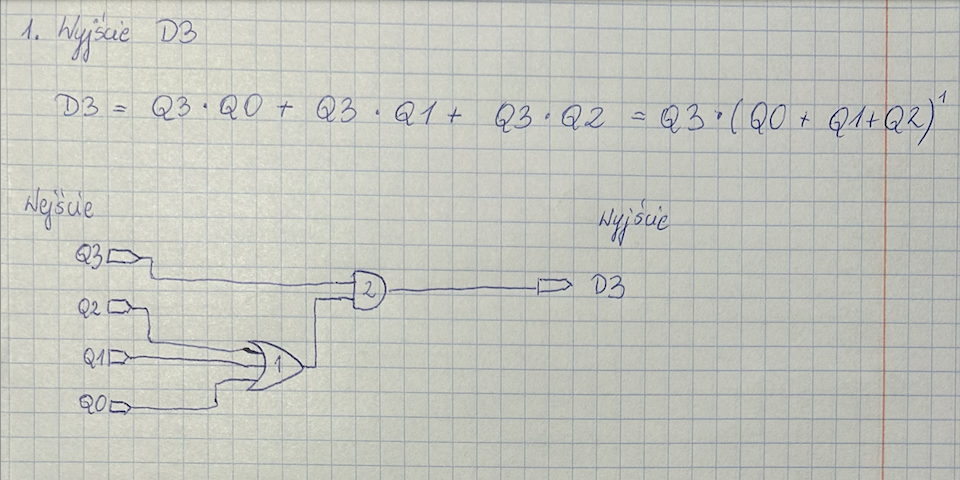 1. Wyjście D3
D3 = Q3 · Q0 + Q3 · Q1 + Q3 · Q2 = Q3 · (Q0 + Q1 + Q2)¹
Wejście
Wyjście
Q3
2
D3
Q2
Q1
1
Q0